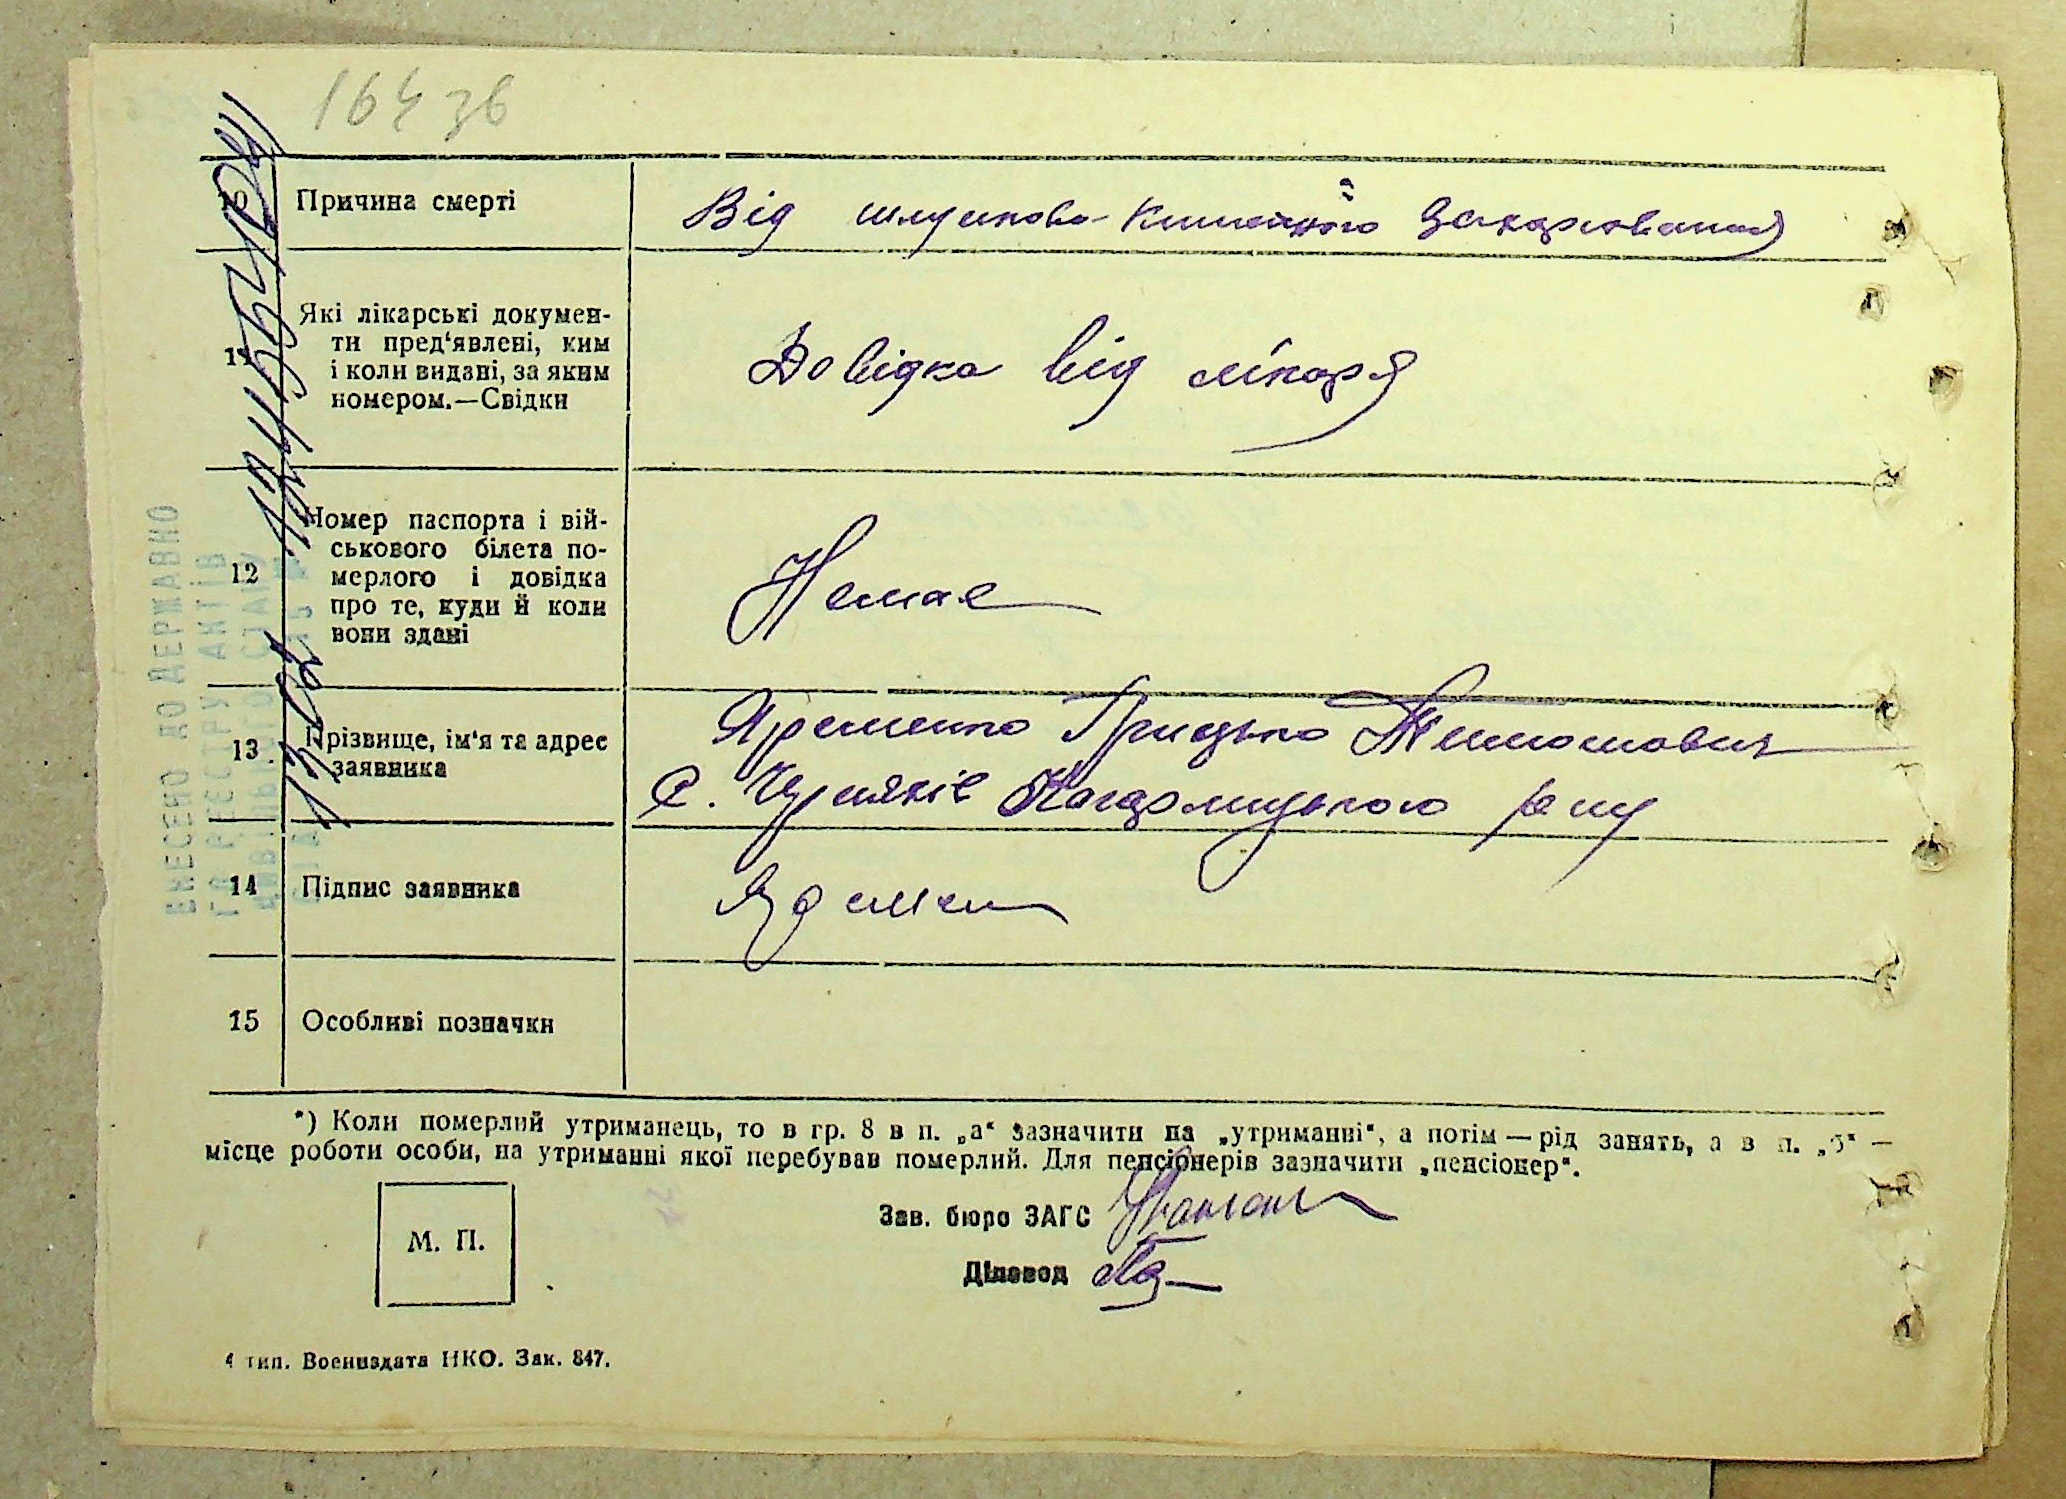 16436
10 Причина смерті
Від шлунково-кишечного захарювання
11 Які лікарські докумен-
ти пред'явлені, ким
і коли видані, за яким
номером.—Свідки
Довідка від лікаря
12 Номер паспорта і вій-
ськового білета по-
мерлого і довідка
про те, куди й коли
вони здані
Немає
13 Прізвище, ім'я та адрес
заявника
Яременко Грицько Тимошович
с. Черняхів Кагарлицького р-ну
14 Підпис заявника
Яремен
15 Особливі позначки
ВНЕСЕНО ДО ДЕРЖАВНО
ГО РЕЄСТРУ АКТІВ
*) Коли померлий утриманець, то в гр. 8 в п. „а“ зазначити на „утриманні“, а потім — рід занять, а в п. „б“ —
місце роботи особи, на утриманні якої перебував померлий. Для пенсіонерів зазначити „пенсіонер“.
М. П.
Зав. бюро ЗАГС
Діловод
4 тип. Воениздата НКО. Зак. 847.